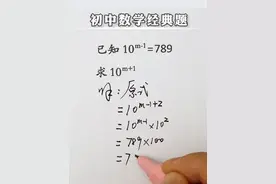 初中数学经典题
已知 10^{m-1}=789
求 10^{m+1}
解：原式
=10^{m-1+2}
=10^{m-1}×10^2
=789×100
=7